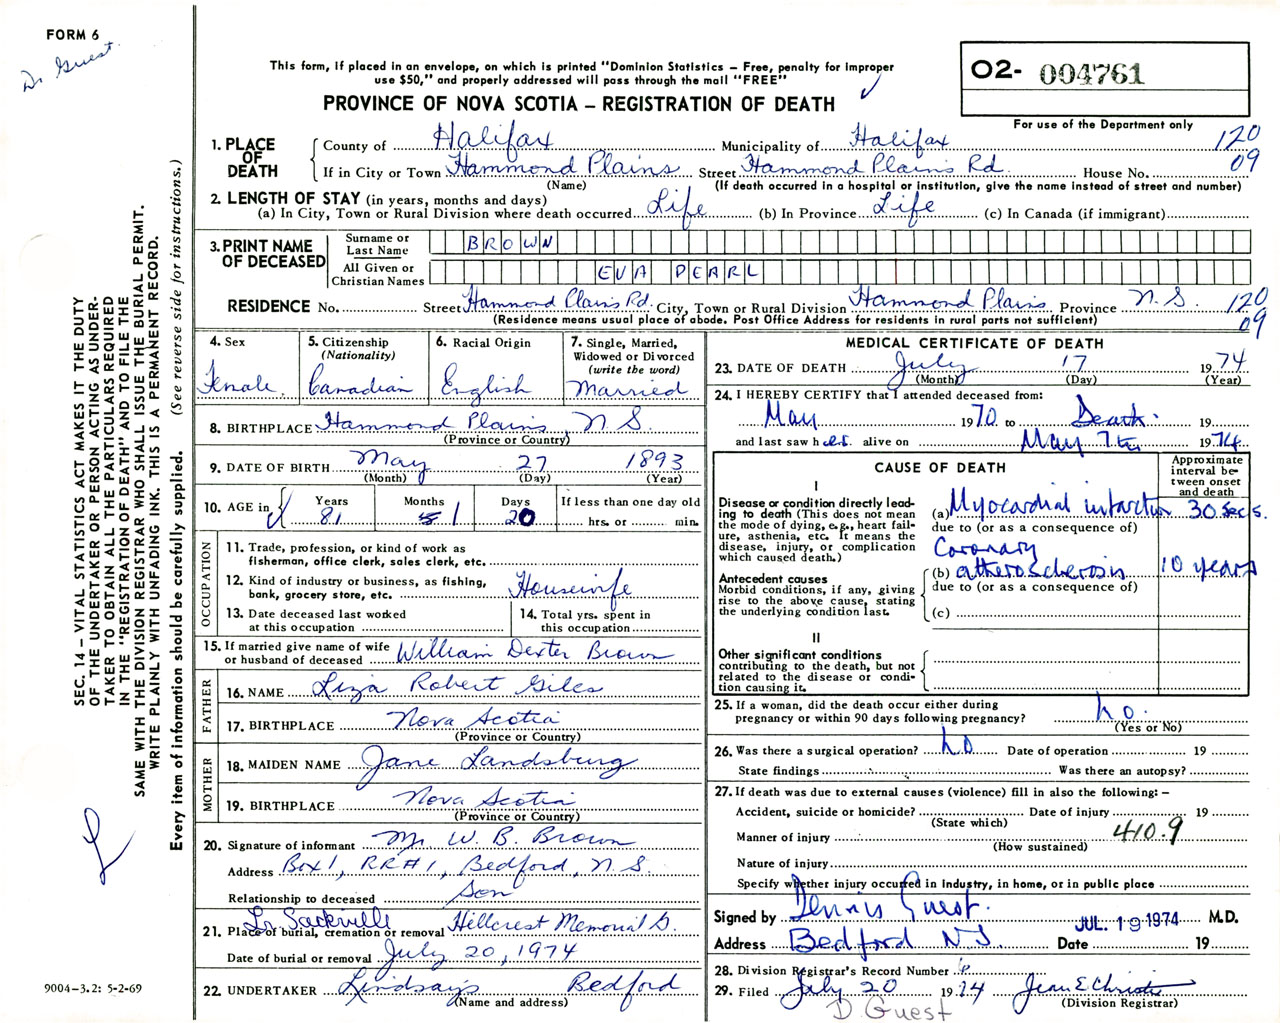 FORM 6
Dr Guest
This form, if placed in an envelope, on which is printed "Dominion Statistics – Free, penalty for improper
use $50," and properly addressed will pass through the mail "FREE"
PROVINCE OF NOVA SCOTIA – REGISTRATION OF DEATH
O2- 004761
For use of the Department only
1. PLACE OF DEATH County of Halifax Municipality of Halifax 120
If in City or Town Hammond Plains Street Hammond Plains Rd. House No. 09
(Name) (If death occurred in a hospital or institution, give the name instead of street and number)
2. LENGTH OF STAY (in years, months and days)
(a) In City, Town or Rural Division where death occurred Life (b) In Province Life (c) In Canada (if immigrant)
3. PRINT NAME OF DECEASED Surname or Last Name BROWN
All Given or Christian Names EVA PEARL
RESIDENCE No. Street Hammond Plains Rd. City, Town or Rural Division Hammond Plains Province N.S. 120
(Residence means usual place of abode. Post Office Address for residents in rural parts not sufficient) 09
4. Sex Female.
5. Citizenship (Nationality) Canadian
6. Racial Origin English
7. Single, Married, Widowed or Divorced (write the word) Married
8. BIRTHPLACE Hammond Plains, N S.
(Province or Country)
9. DATE OF BIRTH May 27 1893
(Month) (Day) (Year)
10. AGE in Years 81 Months 1 Days 20 If less than one day old hrs. or min.
OCCUPATION
11. Trade, profession, or kind of work as
fisherman, office clerk, sales clerk, etc.
12. Kind of industry or business, as fishing,
bank, grocery store, etc. Housewife
13. Date deceased last worked
at this occupation
14. Total yrs. spent in
this occupation
15. If married give name of wife
or husband of deceased William Dexter Brown
FATHER
16. NAME Robert Giles
17. BIRTHPLACE Nova Scotia
(Province or Country)
MOTHER
18. MAIDEN NAME Jane Landsburg
19. BIRTHPLACE Nova Scotia
(Province or Country)
20. Signature of informant Mr. W. B. Brown
Address Box 1, RR#1, Bedford, N.S.
Relationship to deceased Son
Lr Sackville
21. Place of burial, cremation or removal Hillcrest Memorial G.
Date of burial or removal July 20, 1974
22. UNDERTAKER Lindsay's Bedford
(Name and address)
MEDICAL CERTIFICATE OF DEATH
23. DATE OF DEATH July 17 1974
(Month) (Day) (Year)
24. I HEREBY CERTIFY that I attended deceased from:
May 1970 to Death. 19
and last saw her alive on May 7th 1974
CAUSE OF DEATH
Approximate interval between onset and death
I
Disease or condition directly leading to death (This does not mean the mode of dying, e.g., heart failure, asthenia, etc. It means the disease, injury, or complication which caused death.)
(a) Myocardial infarction 30 secs.
due to (or as a consequence of)
Coronary
(b) atherosclerosis 10 years
due to (or as a consequence of)
(c)
Antecedent causes
Morbid conditions, if any, giving rise to the above cause, stating the underlying condition last.
II
Other significant conditions
contributing to the death, but not related to the disease or condition causing it.
25. If a woman, did the death occur either during
pregnancy or within 90 days following pregnancy? no.
(Yes or No)
26. Was there a surgical operation? no Date of operation 19
State findings Was there an autopsy?
27. If death was due to external causes (violence) fill in also the following: –
Accident, suicide or homicide? Date of injury 19
(State which)
Manner of injury 410.9
(How sustained)
Nature of injury
Specify whether injury occurred in industry, in home, or in public place
Signed by Dennis Guest. JUL. 19 1974 M.D.
Address Bedford NS Date 19
28. Division Registrar's Record Number
29. Filed July 20 1974 Jean E Christie
(Division Registrar)
D. Guest
SEC. 14 – VITAL STATISTICS ACT MAKES IT THE DUTY
OF THE UNDERTAKER OR PERSON ACTING AS UNDER-
TAKER TO OBTAIN ALL THE PARTICULARS REQUIRED
IN THE "REGISTRATION OF DEATH" AND TO FILE THE
SAME WITH THE DIVISION REGISTRAR WHO SHALL ISSUE THE BURIAL PERMIT.
WRITE PLAINLY WITH UNFADING INK. THIS IS A PERMANENT RECORD.
Every item of information should be carefully supplied. (See reverse side for instructions.)
9004–3.2: 5-2-69